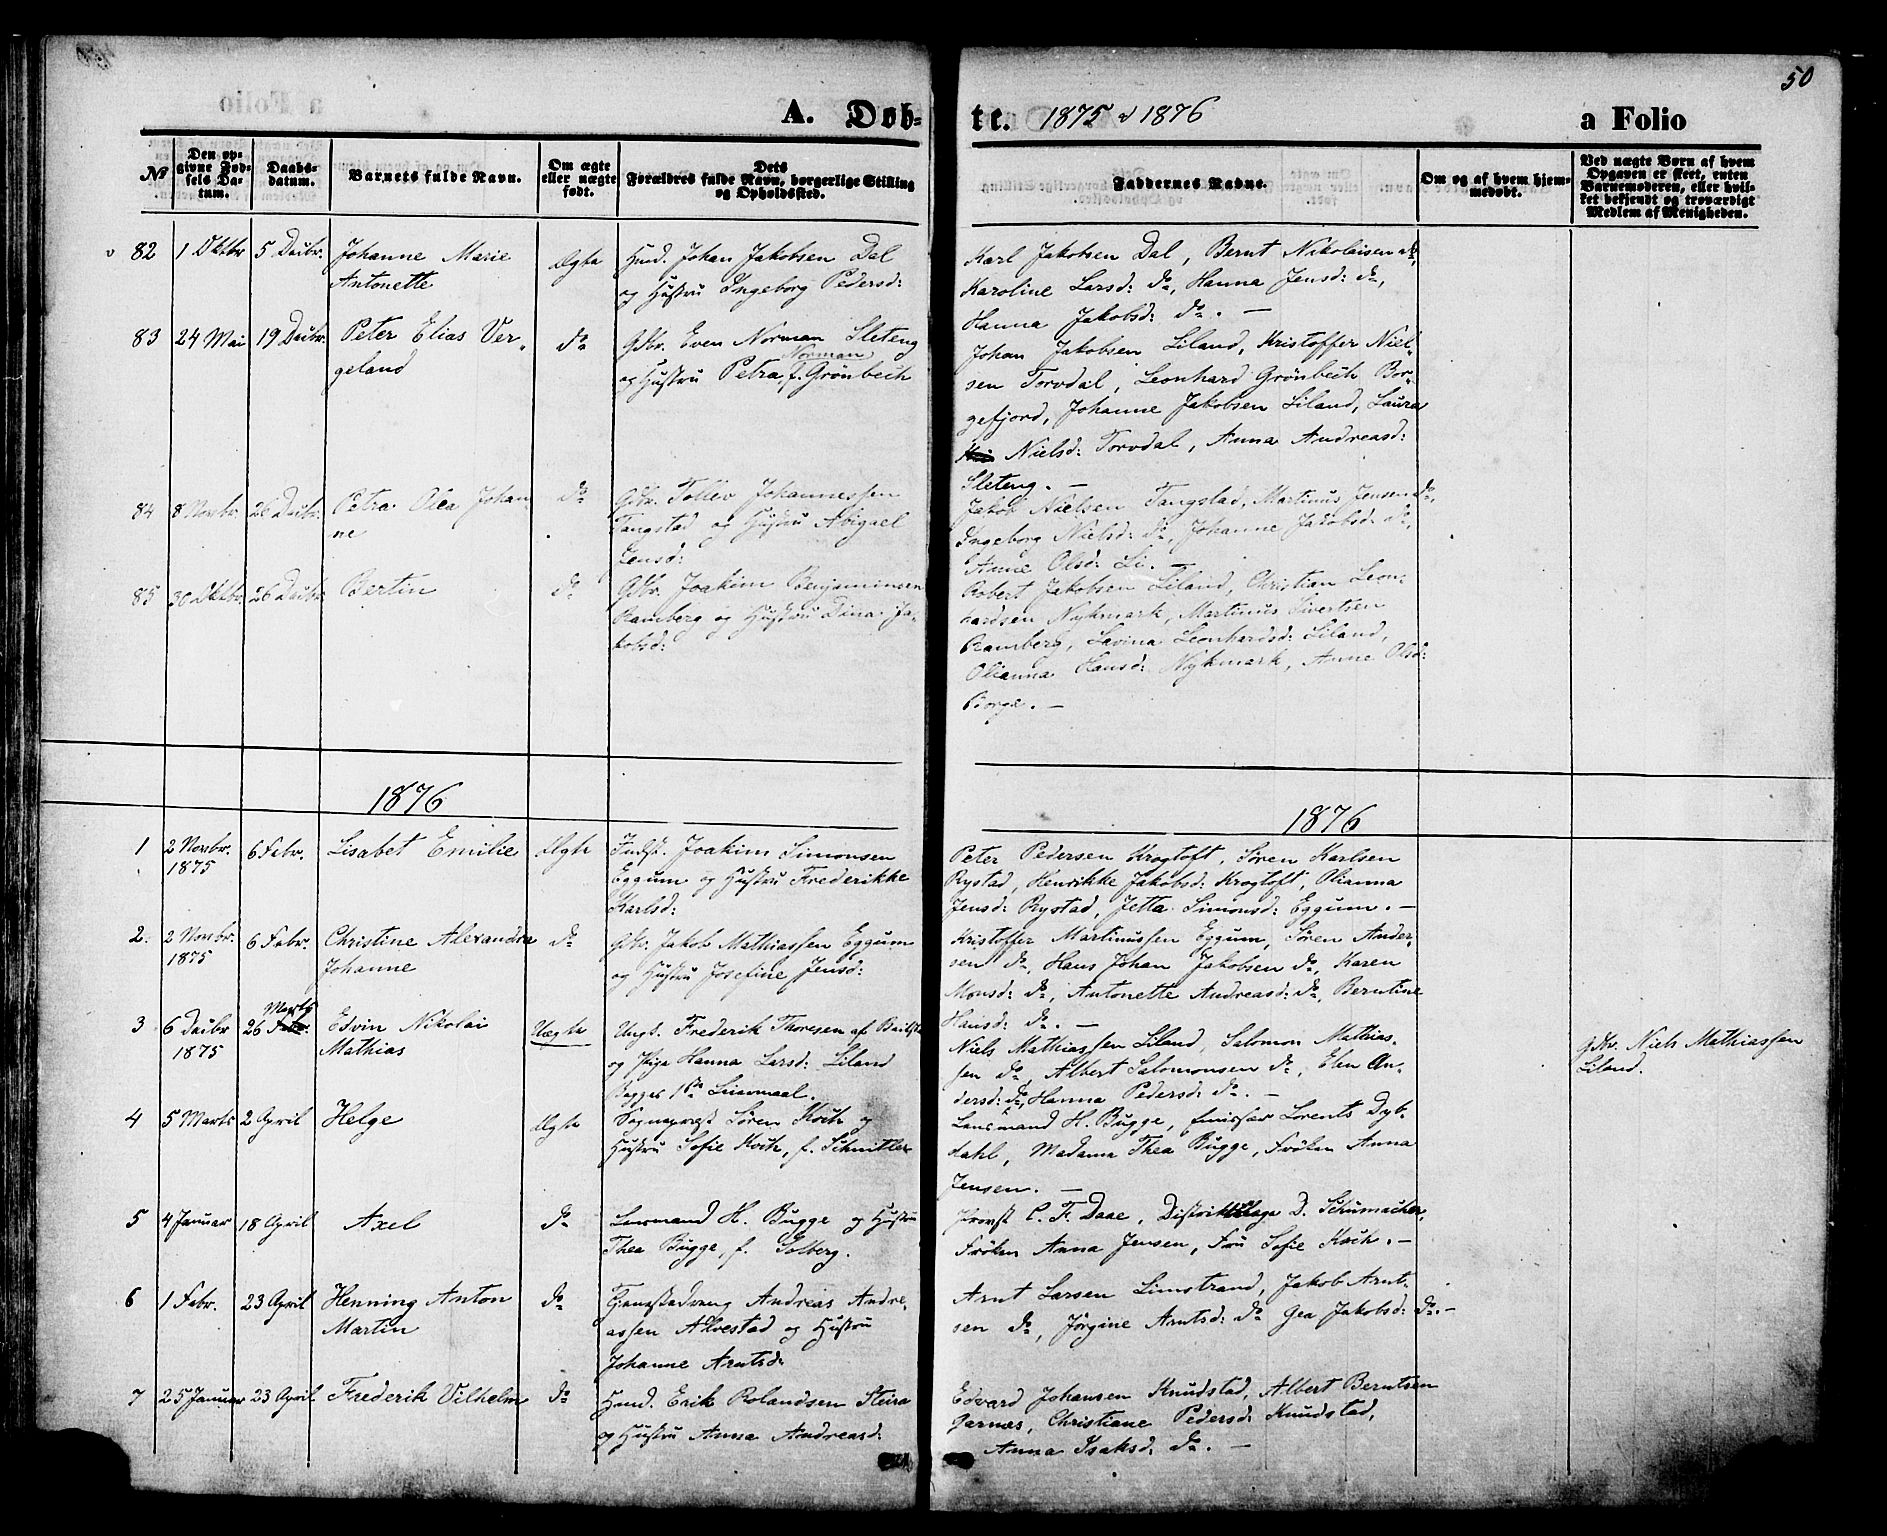 50
A. Døb-
te. 1875 & 1876
a Folio
No
Den op-
givne Fød-
sels Da-
tum.
Daabs-
datum.
Barnets fulde Navn.
Om ægte
eller uægte
født.
Dets
Forældres fulde Navn, borgerlige Stilling
og Opholdssted.
Faddernes Navne.
Om og af hvem hjem-
medøbt.
Ved uægte Børn af hvem
Opgaven er skeet, enten
Barnemoderen, eller hvil-
ket bekjendt og troværdigt
Medlem af Menigheden.
82 1 Oktbr 5 Decbr. Johanne Marie Ægte
Antonette
Johan Jakobsen Dal
og Hustru Ingeborg Pedersd:
Karl Jakobsen Dal, Bernt Nikolaisen do,
Karoline Larsd: do, Hanna Jensd: do,
Hanna Jakobsd: do. —
83 24 Mai 19 Decbr. Peter Elias Ver-
geland do
Gdbr. Even Norman Sleteng
og Hustru Petra Norman f. Grönbech
Johan Jakobsen Liland, Kristoffer Niel-
sen Torvdal, Leonhard Grönbech Bor-
gefjord, Johanne Jakobsen Liland, Laura
Nielsd: Torvdal, Anna Andreasd:
Sleteng. —
84 8 Novbr. 26 Decbr. Petra Olea Johan-
ne do
Gdbr. Tollev Johannessen
Tangstad og Hustru Abigael
Jensd:
Jakob Nielsen Tangstad, Martinus Jensen do,
Ingeborg Nielsd: do, Johanne Jakobsd: do,
Anne Olsd: Li. —
85 30 Oktbr. 26 Decbr. Bertin do
Gdbr. Joakim Benjaminsen
Ramberg og Hustru Dina Ja-
kobsd:
Robert Jakobsen Liland, Christian Leon-
hardsen Nykmark, Martinus Sivertsen
Ramberg, Lavina Leonhardsd: Liland,
Olianna Hansd: Nykmark, Anne Olsd:
Borge. —
1876
1876
1 2 Novbr. 1875 6 Febr. Lisabet Emilie Ægte
Indst. Joakim Simonsen
Eggum og Hustru Frederikke
Karlsd:
Peter Pedersen Krogtoft, Sören Karlsen
Rystad, Henrikke Jakobsd: Krogtoft, Olianna
Jensd: Rystad, Jetta Simonsd: Eggum. —
2. 2 Novbr. 1875 6 Febr. Christine Alexandra
Johanne do
Gbr. Jakob Mathiassen Eggum
og Hustru Josefine Jensd:
Kristoffer Martinussen Eggum, Sören Ander-
sen do, Hans Johan Jakobsen do, Karen
Monsd: do, Antonette Andreasd: do, Berntine
Hansd: do. —
3 6 Decbr 1875 26 Marts Edvin Nikolai
Mathias Uægte
Ungk. Frederik Thoresen af
og Pige Hanna Larsd: Liland
Begges 1ste Leiermaal.
Niels Mathiassen Liland, Salomon Mathias-
sen do, Albert Salomonsen do, Elen An-
dersd: do, Hanna Pedersd: do. —
gdbr. Niels Mathiassen
Liland.
4 5 Marts 2 April Helge Ægte
Sognepræst Sören Koch og
Hustru Sofie Koch, f. Schnitler
Lensmand H. Bugge, Emissær Lorents Dyb-
dahl, Madame Thea Bugge, Fröken Anna
Jensen. —
5 4 Januar 18 April Axel do
Lensmand H. Bugge og Hustru
Thea Bugge, f. Solberg.
Provst C. F. Daae, Distriktslæge D. Schumacher,
Fröken Anna Jensen, Fru Sofie Koch. —
6 1 Febr. 23 April Henning Anton
Martin do
Andreas Andre-
assen Alvestad og Hustru
Johanne Arntsd:
Arnt Larsen Limstrand, Jakob Arnt-
sen do, Jörgine Arntsd: do Gea Jakobsd: do. —
7 25 Januar 23 April Frederik Vilhelm do
Erik Rolandsen Steira
og Hustru Anna Andreasd:
Edvard Johansen Knudstad, Albert Berntsen
Garnæs, Christiane Pedersd: Knudstad,
Anna Isaksd: do. —